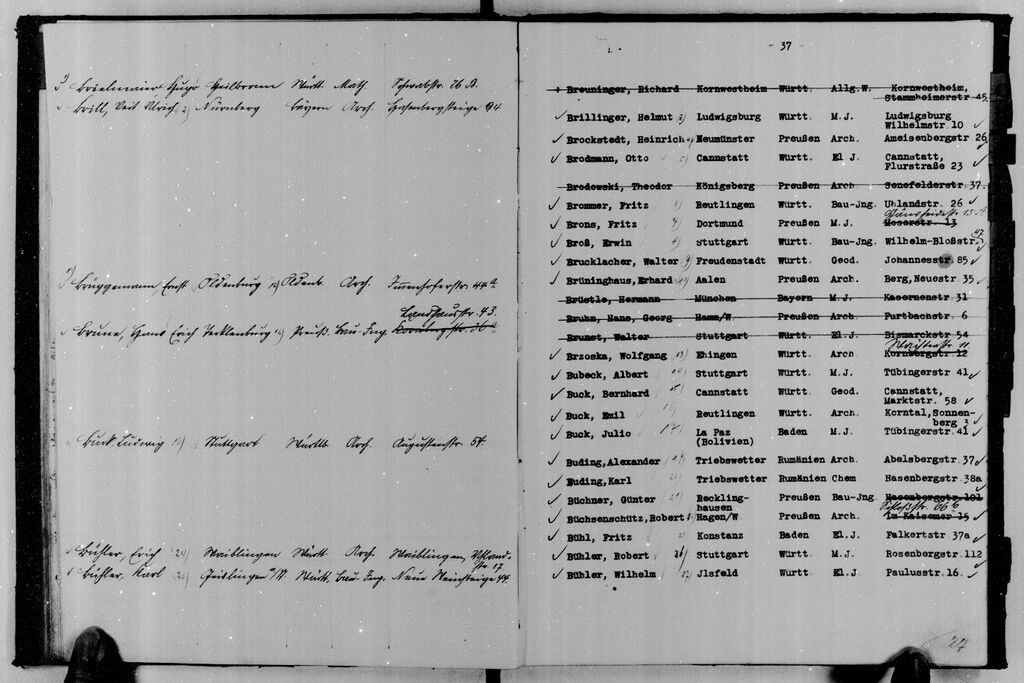 Brielmaier Hugo Heilbronn Württ. Math. Schwabstr. 76 B.
Brill, Veit Ulrich 2) Nürnberg Bayern Arch. Hasenbergsteige 94
Brüggemann, Ernst Oldenburg Oldenb. Arch. Immenhoferstr. 44a
Landhausstr. 43.
Brune, Hans Erich Tecklenburg Preuß. Bau-Ing. Hornbergstr. 36a
Buck Ludwig Stuttgart Württb. Arch. Augustenstr. 54
Bühler, Erich 24) Waiblingen Württ. Arch. Waiblingen, Uhland-
str. 17
Bühler, Karl Geislingen a/St. Württ. Bau-Ing. Neue Weinsteige 44.
- 37 -
+ Breuninger, Richard Kornwestheim Württ. Allg.W. Kornwestheim,
Stammheimerstr 45
✓ Brillinger, Helmut 3) Ludwigsburg Württ. M.J. Ludwigsburg
Wilhelmstr. 10 ✓
✓ Brockstedt, Heinrich 4) Neumünster Preußen Arch. Ameisenbergstr 26 ✓
✓ Brodmann, Otto ✓ 5) Cannstatt Württ. El J. Cannstatt,
Flurstraße 23 ✓
Brodowski, Theodor Königsberg Preußen Arch Senefelderstr 37.
✓ Brommer, Fritz 6) Reutlingen Württ. Bau-Jng. Uhlandstr. 26 ✓
✓ Brons, Fritz 7) Dortmund Preußen M.J. Moserstr. 13
✓ Broß, Erwin 8) Stuttgart Württ. Bau-Jng. Wilhelm-Bloßstr. 47
✓ Brucklacher, Walter 9) Freudenstadt Württ. Geod. Johannesstr 85 ✓
✓ Brüninghaus, Erhard 10) Aalen Preußen Arch. Berg, Neuestr 35 ✓
Brüstle, Hermann München Bayern M.J. Kasernenstr 31
Bruhn, Hans, Georg Hamm/W Preußen Arch. Furtbachstr. 6
Brumst, Walter Stuttgart Württ. El.J. Bismarckstr 54
✓ Brzoska, Wolfgang 13) Ehingen Württ. Arch Kornbergstr 12
✓ Bubeck, Albert 14) Stuttgart Württ. M.J. Tübingerstr 41 ✓
✓ Buck, Bernhard 15) Cannstatt Württ. Geod. Cannstatt,
Marktstr. 58 ✓
✓ Buck, Emil Reutlingen Württ. Arch. Korntal, Sonnen-
berg 3 ✓
✓ Buck, Julio La Paz Baden M.J. Tübingerstr. 41 ✓
(Bolivien)
✓ Buding,Alexander Triebswetter Rumänien Arch. Abelsbergstr 37 ✓
✓ Buding,Karl Triebswetter Rumänien Chem Hasenbergstr 38a
✓ Büchner, Günter 21) Reckling- Preußen Bau-Jng. Hasenbergstr 101
hausen Schloßstr. 66 b
✓ Büchsenschütz,Robert Hagen/W Preußen Arch. Im Kaisemer 15 ✓
✓ Bühl, Fritz Konstanz Baden El.J. Falkertstr. 37a ✓
✓ Bühler, Robert Stuttgart Württ M.J. Rosenbergstr.112
✓ Bühler, Wilhelm Jlsfeld Württ. El.J Paulusstr 16. ✓